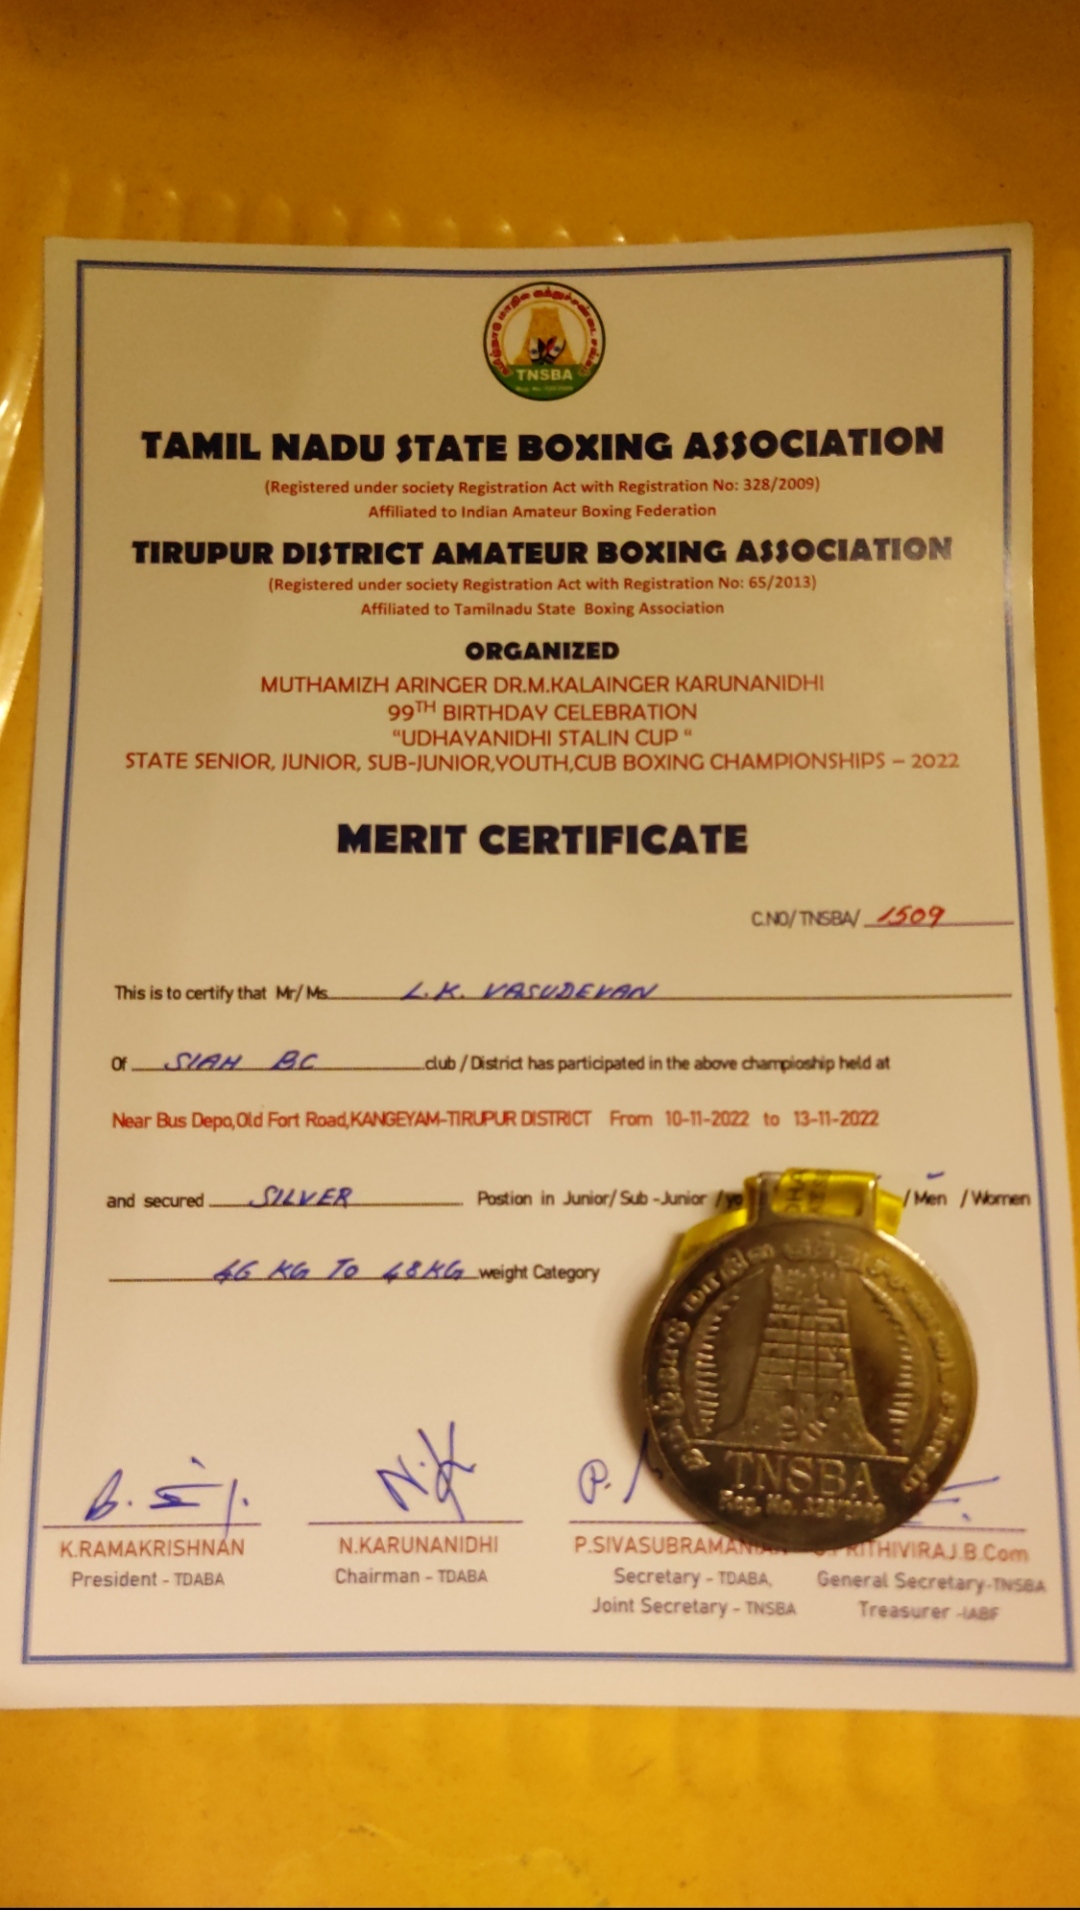 TNSBA
TAMIL NADU STATE BOXING ASSOCIATION
(Registered under society Registration Act with Registration No: 328/2009)
Affiliated to Indian Amateur Boxing Federation
TIRUPUR DISTRICT AMATEUR BOXING ASSOCIATION
(Registered under society Registration Act with Registration No: 65/2013)
Affiliated to Tamilnadu State Boxing Association
ORGANIZED
MUTHAMIZH ARINGER DR.M.KALAINGER KARUNANIDHI
99TH BIRTHDAY CELEBRATION
“UDHAYANIDHI STALIN CUP “
STATE SENIOR, JUNIOR, SUB-JUNIOR,YOUTH,CUB BOXING CHAMPIONSHIPS – 2022
MERIT CERTIFICATE
C.NO/TNSBA/ 1509
This is to certify that Mr/Ms L.K. VASUDEVAN
Of SIAH BC club / District has participated in the above champioship held at
Near Bus Depo,Old Fort Road,KANGEYAM-TIRUPUR DISTRICT From 10-11-2022 to 13-11-2022
and secured SILVER Postion in Junior/ Sub -Junior / /Men /Women
46 KG TO 48KG weight Category
TNSBA
Reg. No. 328/2009
K.RAMAKRISHNAN N.KARUNANIDHI P.SIVASUBRAMANIAN
President - TDABA Chairman - TDABA Secretary - TDABA, General Secretary-TNSBA
Joint Secretary - TNSBA Treasurer -IABF